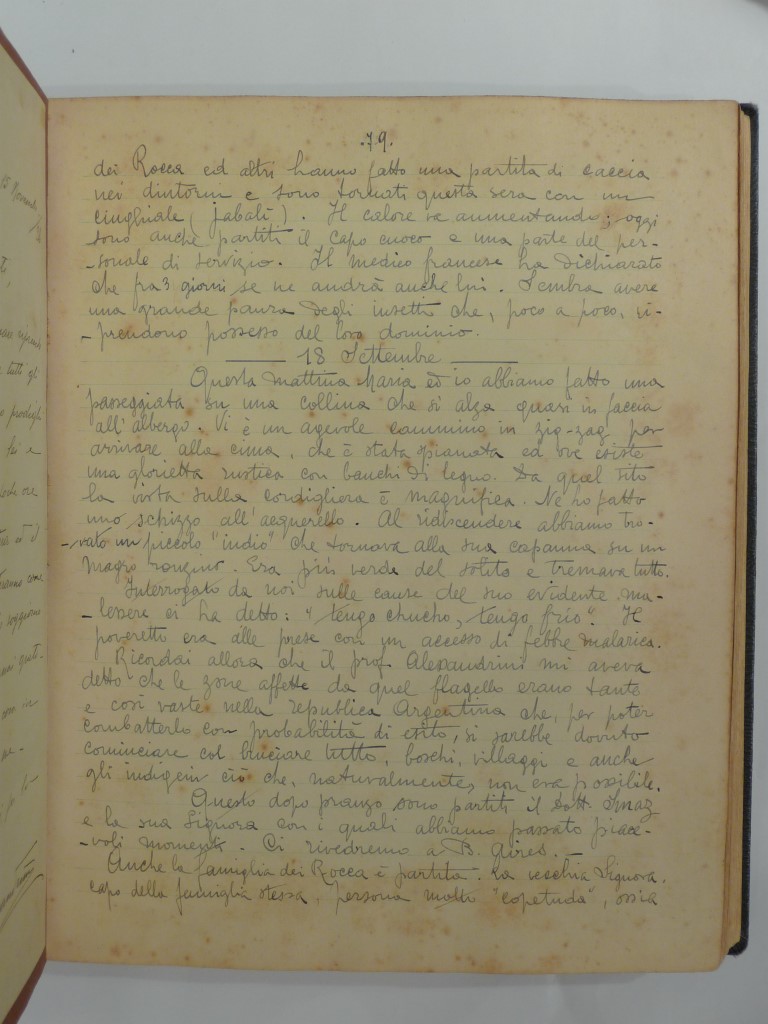 .79.
dei Rocca ed altri hanno fatto una partita di caccia
nei dintorni e sono tornati questa sera con un
cinghiale (jabalì). Il calore va aumentando; oggi
sono anche partiti il capo cuoco e una parte del per-
-sonale di servizio. Il medico francese ha dichiarato
che fra 3 giorni se ne andrà anche lui. Sembra avere
una grande paura degli insetti che, poco a poco, ri-
-prendono possesso del loro dominio.
18 Settembre
Questa mattina Maria ed io abbiamo fatto una
passeggiata su una collina che si alza quasi in faccia
all'albergo. Vi è un agevole cammino in zig-zag per
arrivare alla cima, che è stata spianata ed ove esiste
una glorietta rustica con banchi di legno. Da quel sito
la vista sulla cordigliera è magnifica. Ne ho fatto
uno schizzo all'acquerello. Al ridiscendere abbiamo tro-
-vato un piccolo "indio" che tornava alla sua capanna su un
magro ronzino. Era più verde del solito e tremava tutto.
Interrogato da noi sulle cause del suo evidente ma-
-lessere ci ha detto: "tengo chucho, tengo frio". Il
poveretto era alle prese con un accesso di febbre malarica.
Ricordai allora che il prof. Alessandrini mi aveva
detto che le zone affette da quel flagello erano tante
e così vaste nella repubblica Argentina che, per poter
combatterlo con probabilità di esito, si sarebbe dovuto
cominciare col bruciare tutto, boschi, villaggi e anche
gli indigeni ciò che, naturalmente, non era possibile.
Questo dopo pranzo sono partiti il Dott.
e la sua Signora con i quali abbiamo passato piace-
-voli momenti. Ci rivedremo a B. Aires. -
Anche la famiglia dei Rocca è partita. La vecchia Signora.
capo della famiglia stessa, persona molto "copetuda", ossia